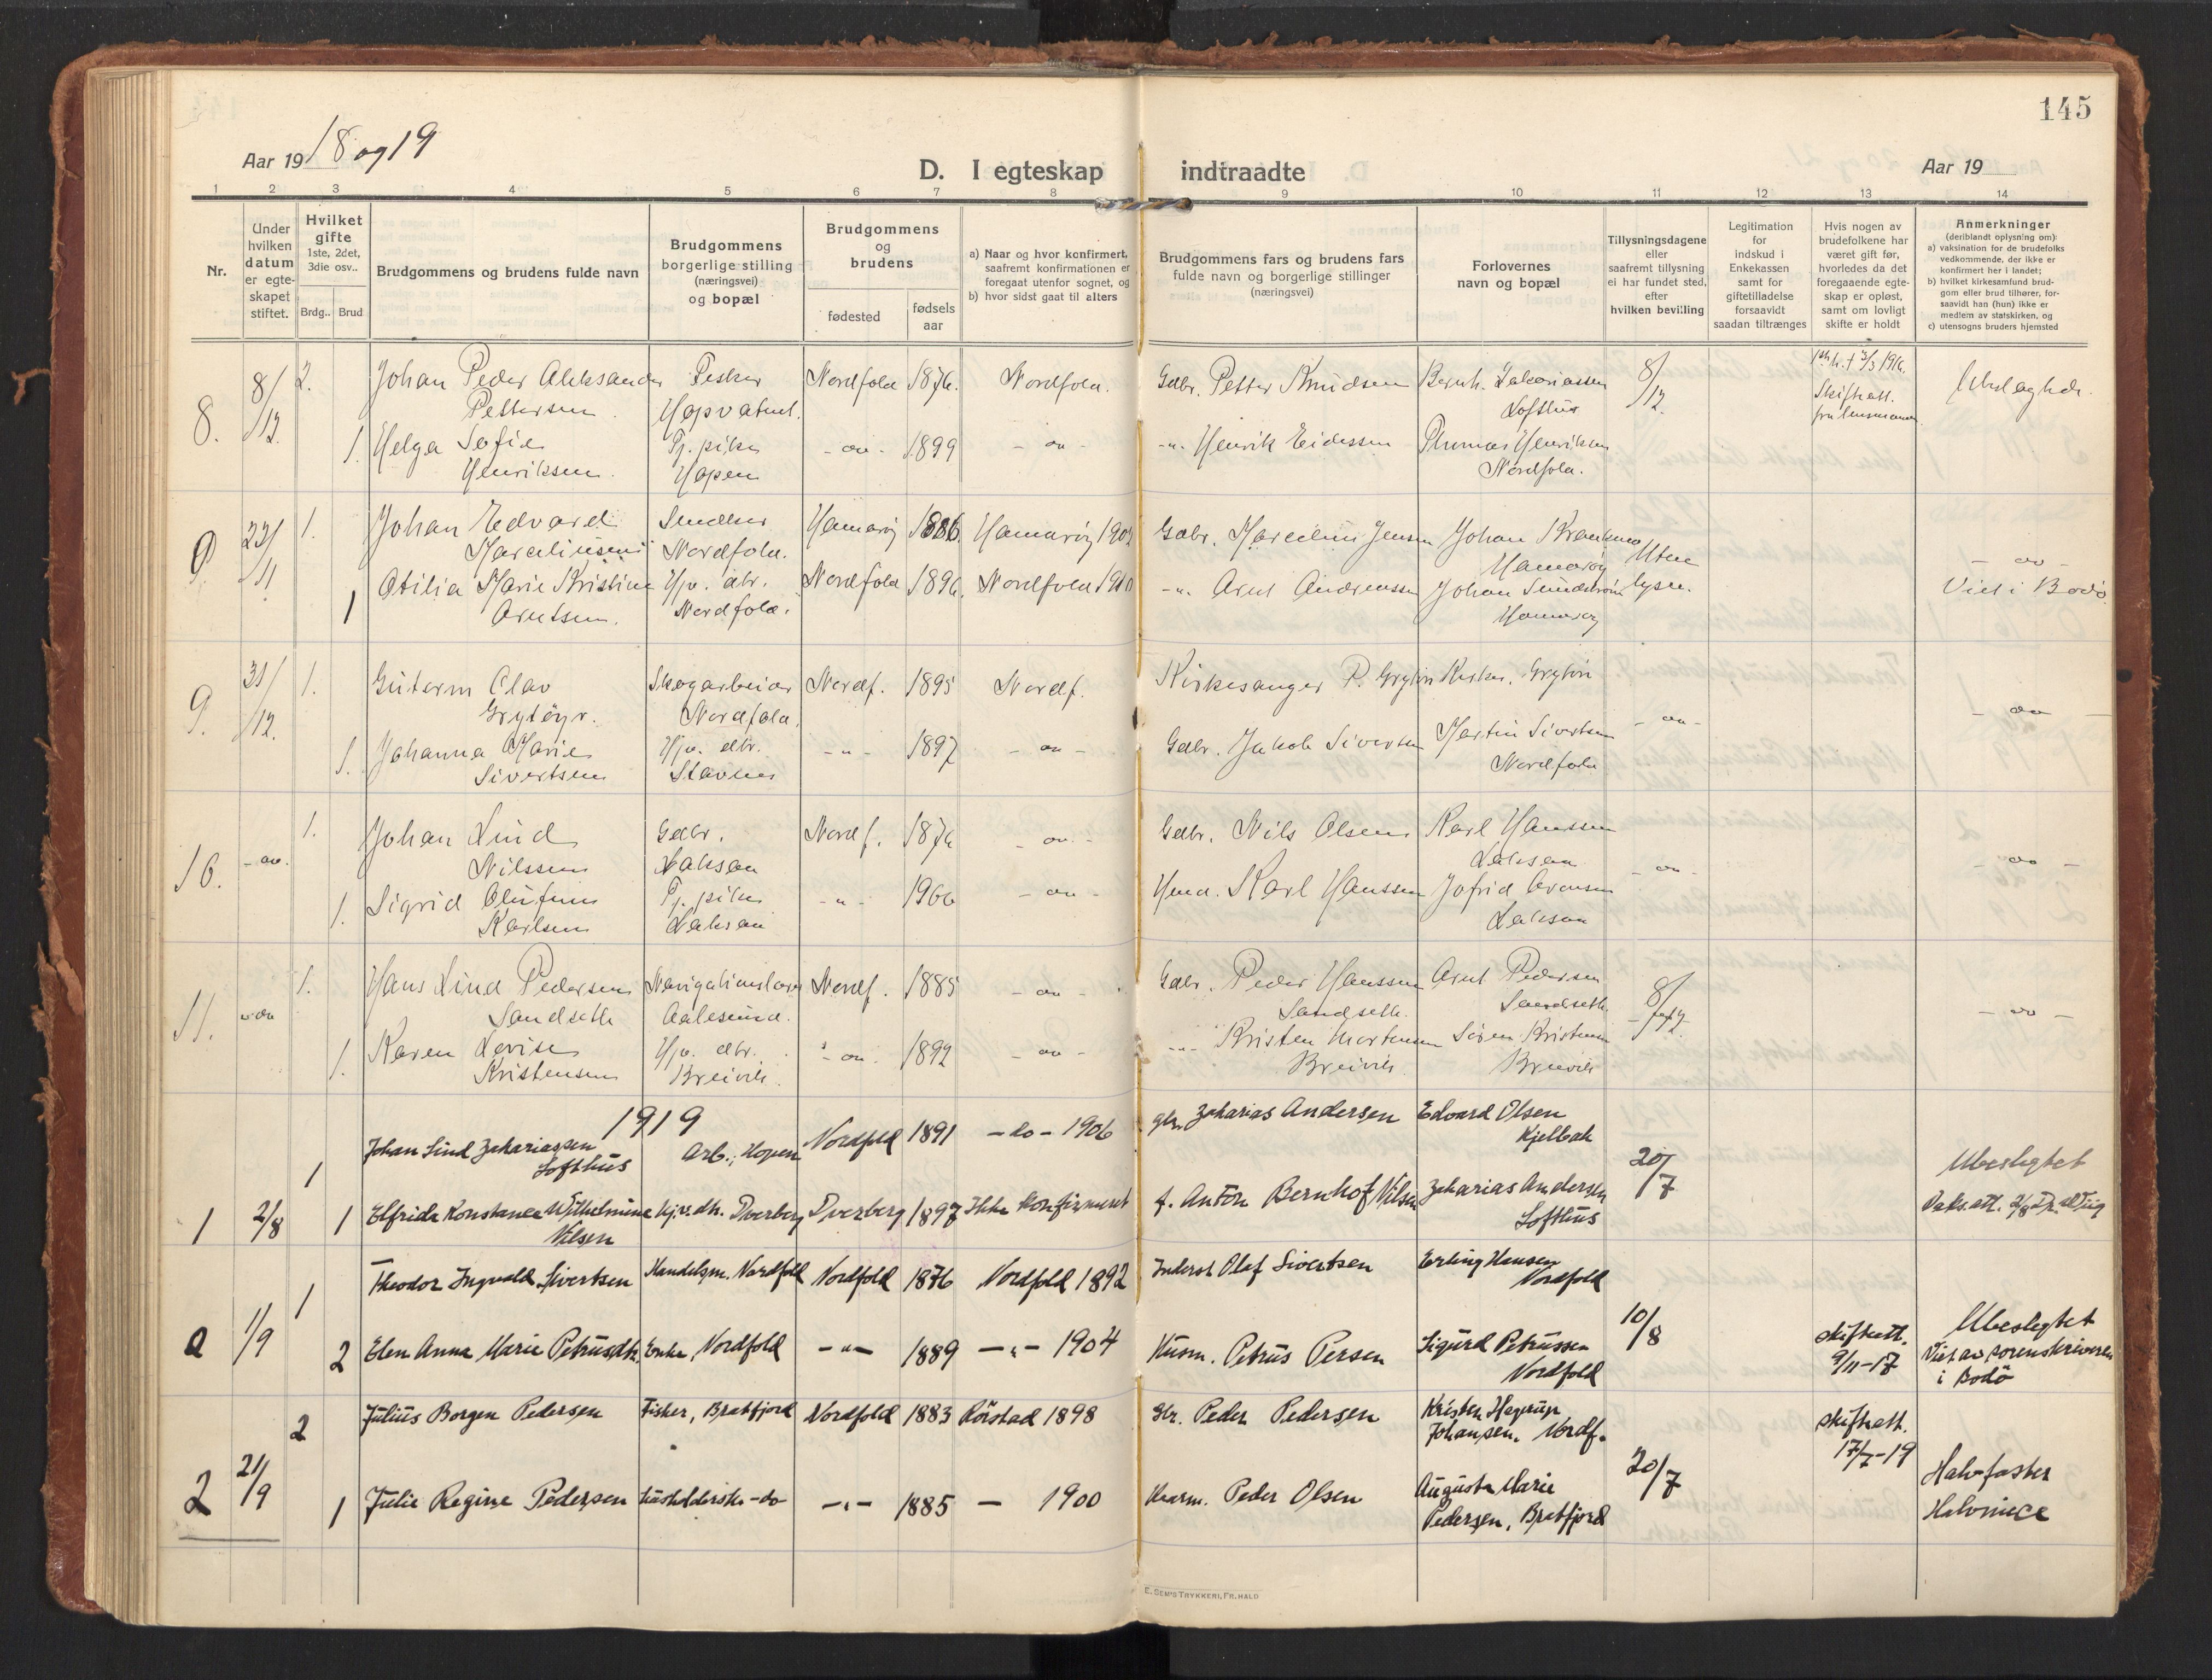 145
Aar 1918 og 19
D. I egteskap indtraadte
Aar 19
1 2 3 4 5 6 7 8 9 10 11 12 13 14
Nr.
Under hvilken datum er egte-skapet stiftet.
Hvilket gifte 1ste, 2det, 3die osv..
Brdg.. Brud
Brudgommens og brudens fulde navn
Brudgommens borgerlige stilling (næringsvei) og bopæl
Brudgommens og brudens
fødested
fødsels aar
a) Naar og hvor konfirmert, saafremt konfirmationen er foregaat utenfor sognet, og
b) hvor sidst gaat til alters
Brudgommens fars og brudens fars fulde navn og borgerlige stillinger (næringsvei)
Forlovernes navn og bopæl
Tillysningsdagene eller saafremt tillysning ei har fundet sted, efter hvilken bevilling
Legitimation for indskud i Enkekassen samt for giftetilladelse forsaavidt saadan tiltrænges
Hvis nogen av brudefolkene har været gift før, hvorledes da det foregaaende egte-skap er opløst, samt om lovligt skifte er holdt
Anmerkninger (deriblandt oplysning om)
a) vaksination for de brudefolks vedkommende, der ikke er konfirmert her i landet;
b) hvilket kirkesamfund brud-gom eller brud tilhører, for-saavidt han (hun) ikke er medlem av statskirken, og
c) utensogns bruders hjemsted
8. 8/12 2. Johan Peder Aleksander Pettersen Fisker Hopvatnet. Nordfold 1876. Nordfold. Gdbr. Petter Knudsen Bernh. Zakariassen Lofthus 8/12 Skifteatt. fra lensmannen Ubeslegtede.
1. Helga Sofie Henriksen Tj. pike Hopen -do- 1899 -do- -"- Henrik Eidessen Thomas Henriksen Nordfold.
9. 23/11 1. Johan Edvard Marceliusen Nordfold. Hamarøy 1886. Hamarøy Gdbr. Marcelius Jensen Johan Hamarøy Uten lysn. -do-
1 Otilia Marie Kristine Arntsen. Hjv. dtr. Nordfold. Nordfold 1896. Nordfold 1910 -"- Arnt Andreassen Johan Sundstrøm Hamarøy Viet i Bodø.
9. 31/12. 1. Guttorm Olav Grytøyr. Skogarbeider Nordfold. Nordf. 1895 Nordf. Kirkesanger P. Grytøir Kirkes. Grytøir -do- -do-
1. Johanna Marie Sivertsen Hjv. dtr. Stavnes -"- 1897 -do- Gdbr. Jakob Sivertsen Martin Sivertsen Nordfold
10. -do- 1. Johan Lind Nilssen Gdbr. Laksaa Nordf. 1876 -do- Gdbr. Nils Olsen Karl Hanssen Laksaa -do- -do-
1. Sigrid Olufine Karlsen Tj. pike Laksaa -"- 1900 -do- Karl Hanssen Jofrid Laksaa
11. -do- 1. Hans Lind Pedersen Sandseth Navigationslærer Aalesund. Nordf. 1885 -do- Gdbr. Peder Hanssen Sandseth. Arnt Pedersen Sandseth. 8/12 -do-
1. Karen Lovise Kristensen Hjv. dtr. Breivik. -do- 1892 -do- -"- Kristen Mortensen Breivik. Søren Kristensen Breivik
1919
1 Johan Lind Zakariassen Lofthus Arb., Hopen Nordfold 1891 -do- 1906 gbr. Zakarias Andersen Edvard Olsen Kjelbak 20/7 Ubeslegtet
1 2/8 1 Elfrida Konstance Wilhelmine Nilsen hjv.dtr. Dverberg Dverberg 1897 Ikke konfirmeret f. Anton Bernhof Nilsen Zakarias Andersen Lofthus Vaks.att.
1 Theodor Ingvald Sivertsen Handelsm. Nordfold Nordfold 1876 Nordfold 1892 Inderst Olaf Sivertsen Erling Hansen Nordfold
1/9 2 Elen Anna Marie Petrusdtr. Enke, Nordfold -"- 1889 -"- 1904 Husm. Petrus Persen Sigurd Petrussen Nordfold 10/8 skifteatt. 9/11-17 Ubeslegtet Viet av sorenskriveren i Bodø
2 Julius Borgen Pedersen Fisker, Bratfjord Nordfold 1883 Rörstad 1898 Gbr. Peder Pedersen Kristen Hegrup Johansen, Nordf. skifteatt. 17/7-19
2 21/9 1 Julie Regine Pedersen husholderske -do- -"- 1885 - 1900 Peder Olsen Augusta Marie Pedersen, Bratfjord 20/7 Halvfaster Halvniece
E. SEM'S TRYKKERI, FR.HALD